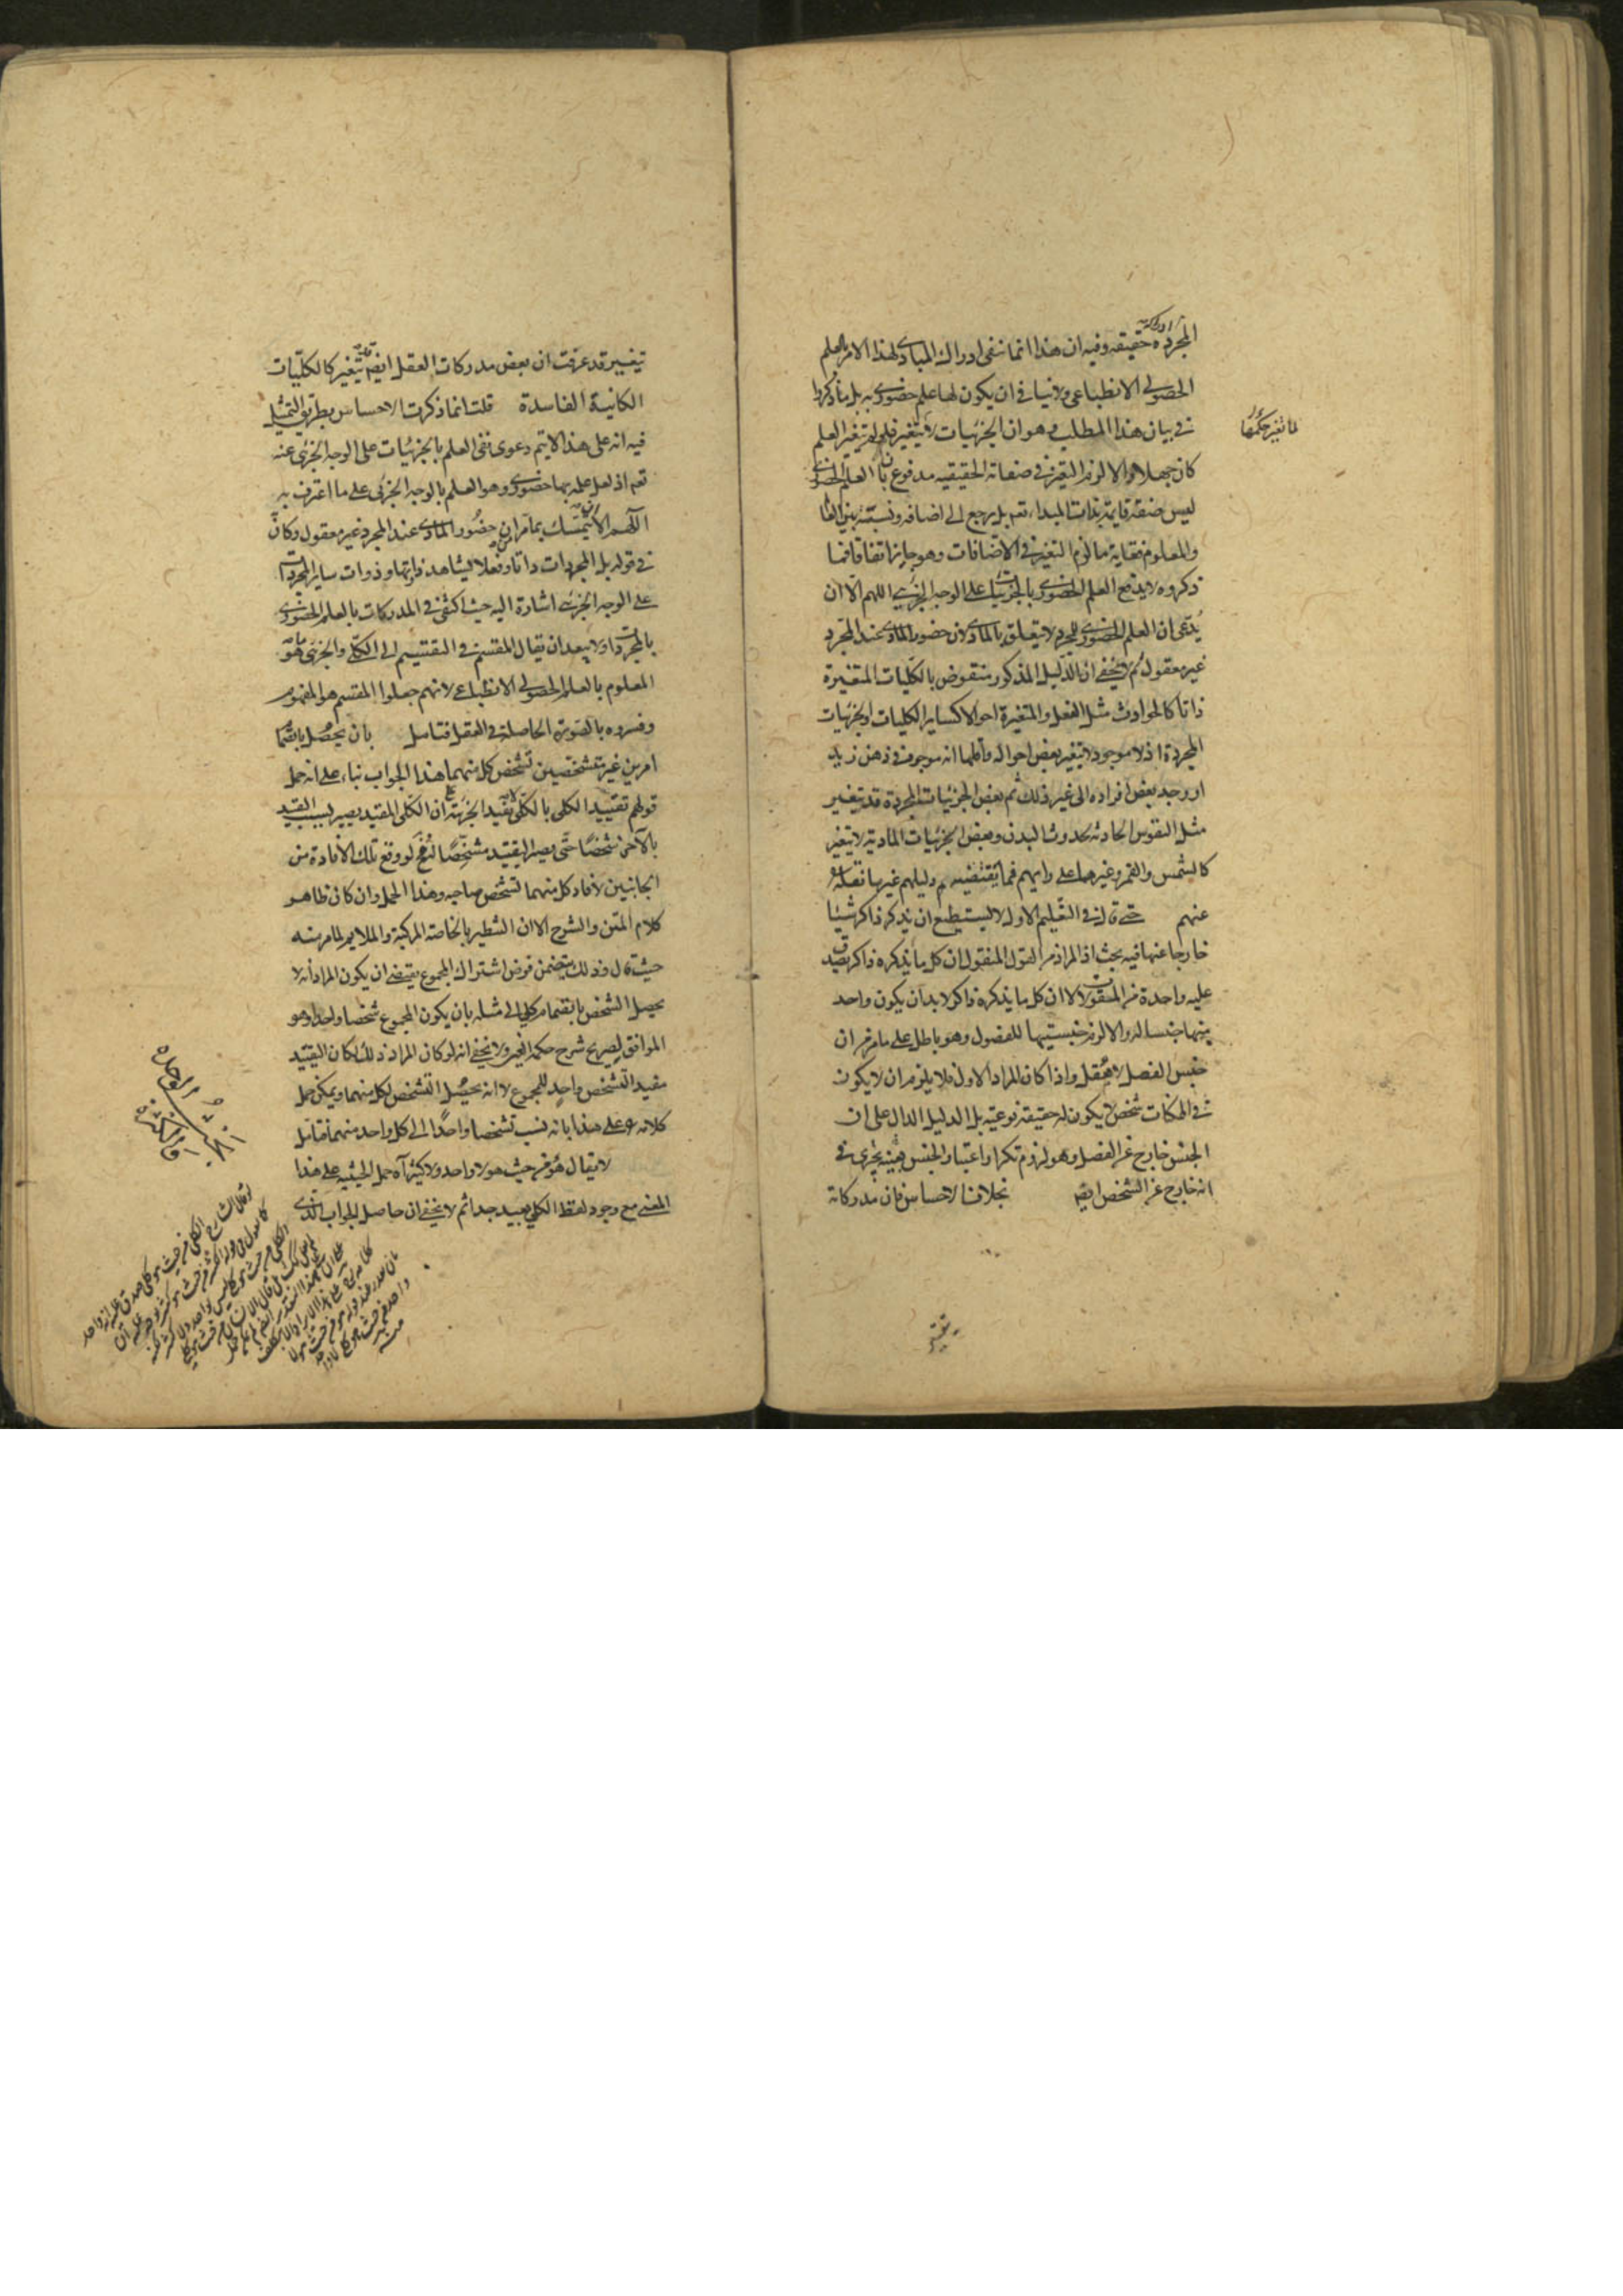 المجردة حقيقة وفيه ان هذا انما ينفى ادراك المبادى لهذا الامر بالعلم
الحصولى الانطباعى ولا ينافى ان يكون لها علم حضورى به بل ما ذكروا
فى بيان هذا المطلب وهو ان الجزئيات تتغير فلو لم يتغير العلم
كان جهلا والا لزم التغير فى صفاته الحقيقيه مدفوع بان العلم الحضورى
ليس صفة قايمة بذات المبداء تعم بل يرجع الى اضافه ونسبة بين العالم
والمعلوم فغاية ما لزم التغير فى الاضافات وهو جايز اتفاقا فما
ذكروه لا يدفع العلم الحضورى بالجزئيات على الوجه الجزئى اللهم الا ان
يدعى ان العلم الحضورى للمجرد لا يتعلق بالمادى لان حضور المادى عند المجرد
غير معقول ثم لا يخفى ان الدليل المذكور منقوض بالكليات المتغيرة
ذاتا كالحوادث مثل الفعل والمتغيرة احوالا كساير الكليات والجزئيات
المجردة اذ لا موجود لا يتغير بعض احواله واقلها انه موجود فى ذهن زيد
او وجد بعض افراده الى غير ذلك ثم بعض الجزئيات المجردة قد يتغير
مثل النفوس الحادثه بحدوث البدن وبعض الجزئيات المادية لا يتغير
كالشمس والقمر وغيرهما على رايهم فما يقتضيه دليلهم غير ما نقله
عنهم حتى قال فى التعليم الاول لا يستطيع ان يذكر ذاكر شيئا
خارجا عنها فيه بحث اذ المراد من القول المنقول ان كل ما يذكره ذاكر يصدق
عليه واحدة من المقولات لا ان كل ما يذكره ذاكر لا بد ان يكون واحد
منها جنسا له والا لزم جنسيتها للفصول وهو باطل على ما مر من ان
جنس الفصل لا يعقل واذا كان المراد الاول فلا يلزم ان لا يكون
فى الممكنات شخص لا يكون له حقيقة نوعية بل الدليل الدال على ان
الجنس خارج عن الفصل وهو لزوم تكرار اعتبار الجنس بعينه يجرى فى
انه خارج عن الشخص ايضا بخلاف الاحساس فان مدركاته
لما تغير حكمها
تتغير
تتغير قد عرفت ان بعض مدركات العقل ايضا يتغير كالكليات
الكائنة الفاسدة قلت انما ذكرت الاحساس بطريق التمثيل
فيه انه على هذا لا يتم دعوى نفى العلم بالجزئيات على الوجه الجزئى عنه
تعم اذ لعل علمه بها حضورى وهو العلم بالوجه الجزئى على ما اعترف به
اللهم الا ان يتمسك بما مر ان حضور المادى عند المجرد غير معقول وكان
فى قوله بل المجردات ذاتا وفعلا يشاهد ذواتها وذوات ساير المجردات
على الوجه الجزئى اشارة اليه حيث اكتفى فى المدركات بالعلم الحضورى
بالمجردات ولا يبعد ان يقال المقسم فى التقسيم الى الكلى والجزئى هو
المعلوم بالعلم الحصولى الانطباعى لانهم جعلوا المقسم هو المفهوم
وفسروه بالصورة الحاصلة فى العقل فتامل بان يحصل بانضمام
امرين غير متشخصين تشخص كل منهما هذا الجواب بناء على انه حمل
قولهم تقييد الكلى بالكلى لا يفيد الجزئية على ان الكلى المقيد يصير بسبب القيد
بالآخر شخصا حتى يصير القيد مشخصا له فح لو وقع تلك الافادة من
الجانبين لافاد كل منهما تشخص صاحبه وهذا الحمل وان كان ظاهر
كلام المتن والشرح الا ان التنظير بالخاصة المركبة والملايم لما مر منه
حيث قال وذلك يتضمن فرض اشتراك المجموع يقتضى ان يكون المراد انه لا
يحصل الشخص بانضمام كلى الى مثله بان يكون المجموع شخصا واحدا وهو
الموافق لصريح شرح حكمة العين ولا يخفى انه لو كان المراد ذلك لكان التقييد
مفيدا لتشخص واحد للمجموع لا انه يحصل التشخص لكل منهما ويمكن حمل
كلامه على هذا بانه نسب تشخصا واحدا الى كل واحد منهما فتامل
لا يقال هو من حيث هو لا واحد ولا كثير آه حمل الحيثية على هذا
المعنى مع وجود لفظ الكلى بعيد جدا ثم لا يخفى ان حاصل الجواب الذى